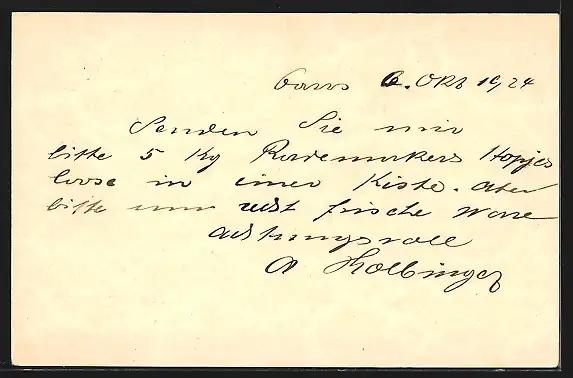 6. Okt 1924
Senden Sie mir
bitte 5 Kg Rademakers Hopjes
loose in einer Kiste. Aber
bitte nur recht frische Ware
achtungsvoll
A Holbinger